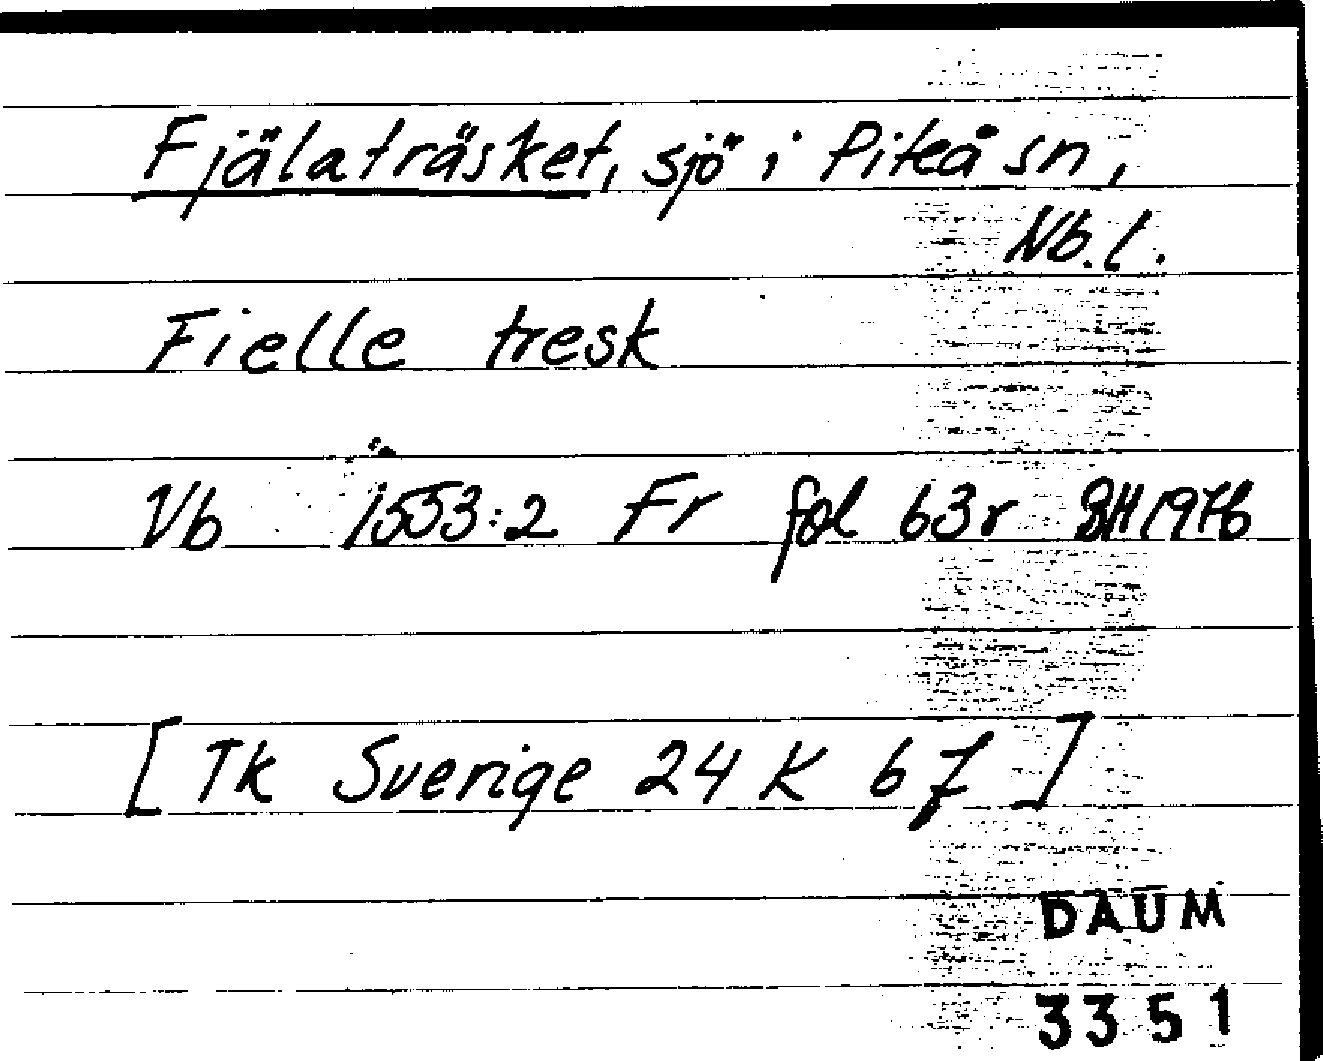 Fjälaträsket, sjö i Piteå sn,
Nb.l.
Fielle tresk
Vb 1553:2 Fr fol 63r 1976
[Tk Sverige 24 K 6f]
DAUM
3351